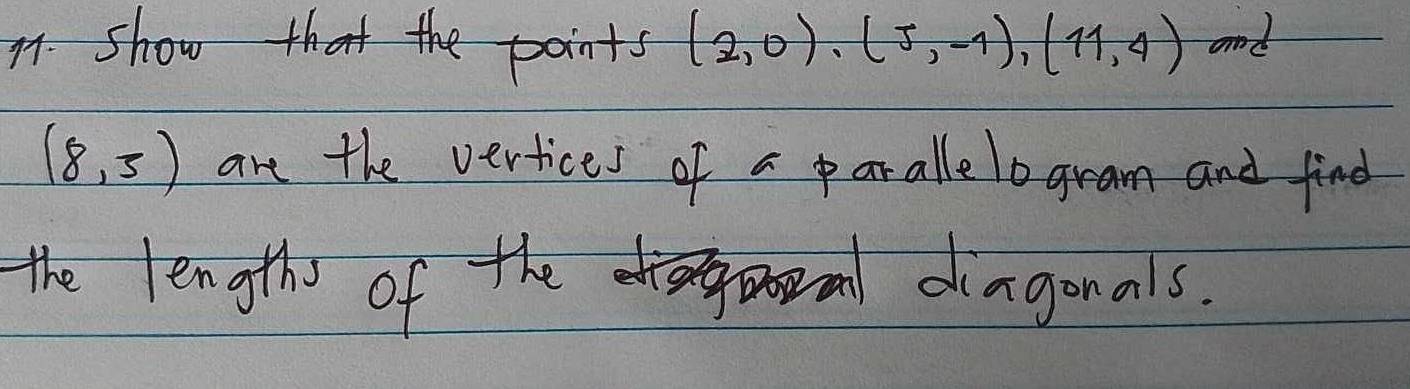 11. Show that the points (2,0), (5,-1), (11,4) and
(8,5) are the vertices of a parallelogram and find
the lengths of the diagonals.